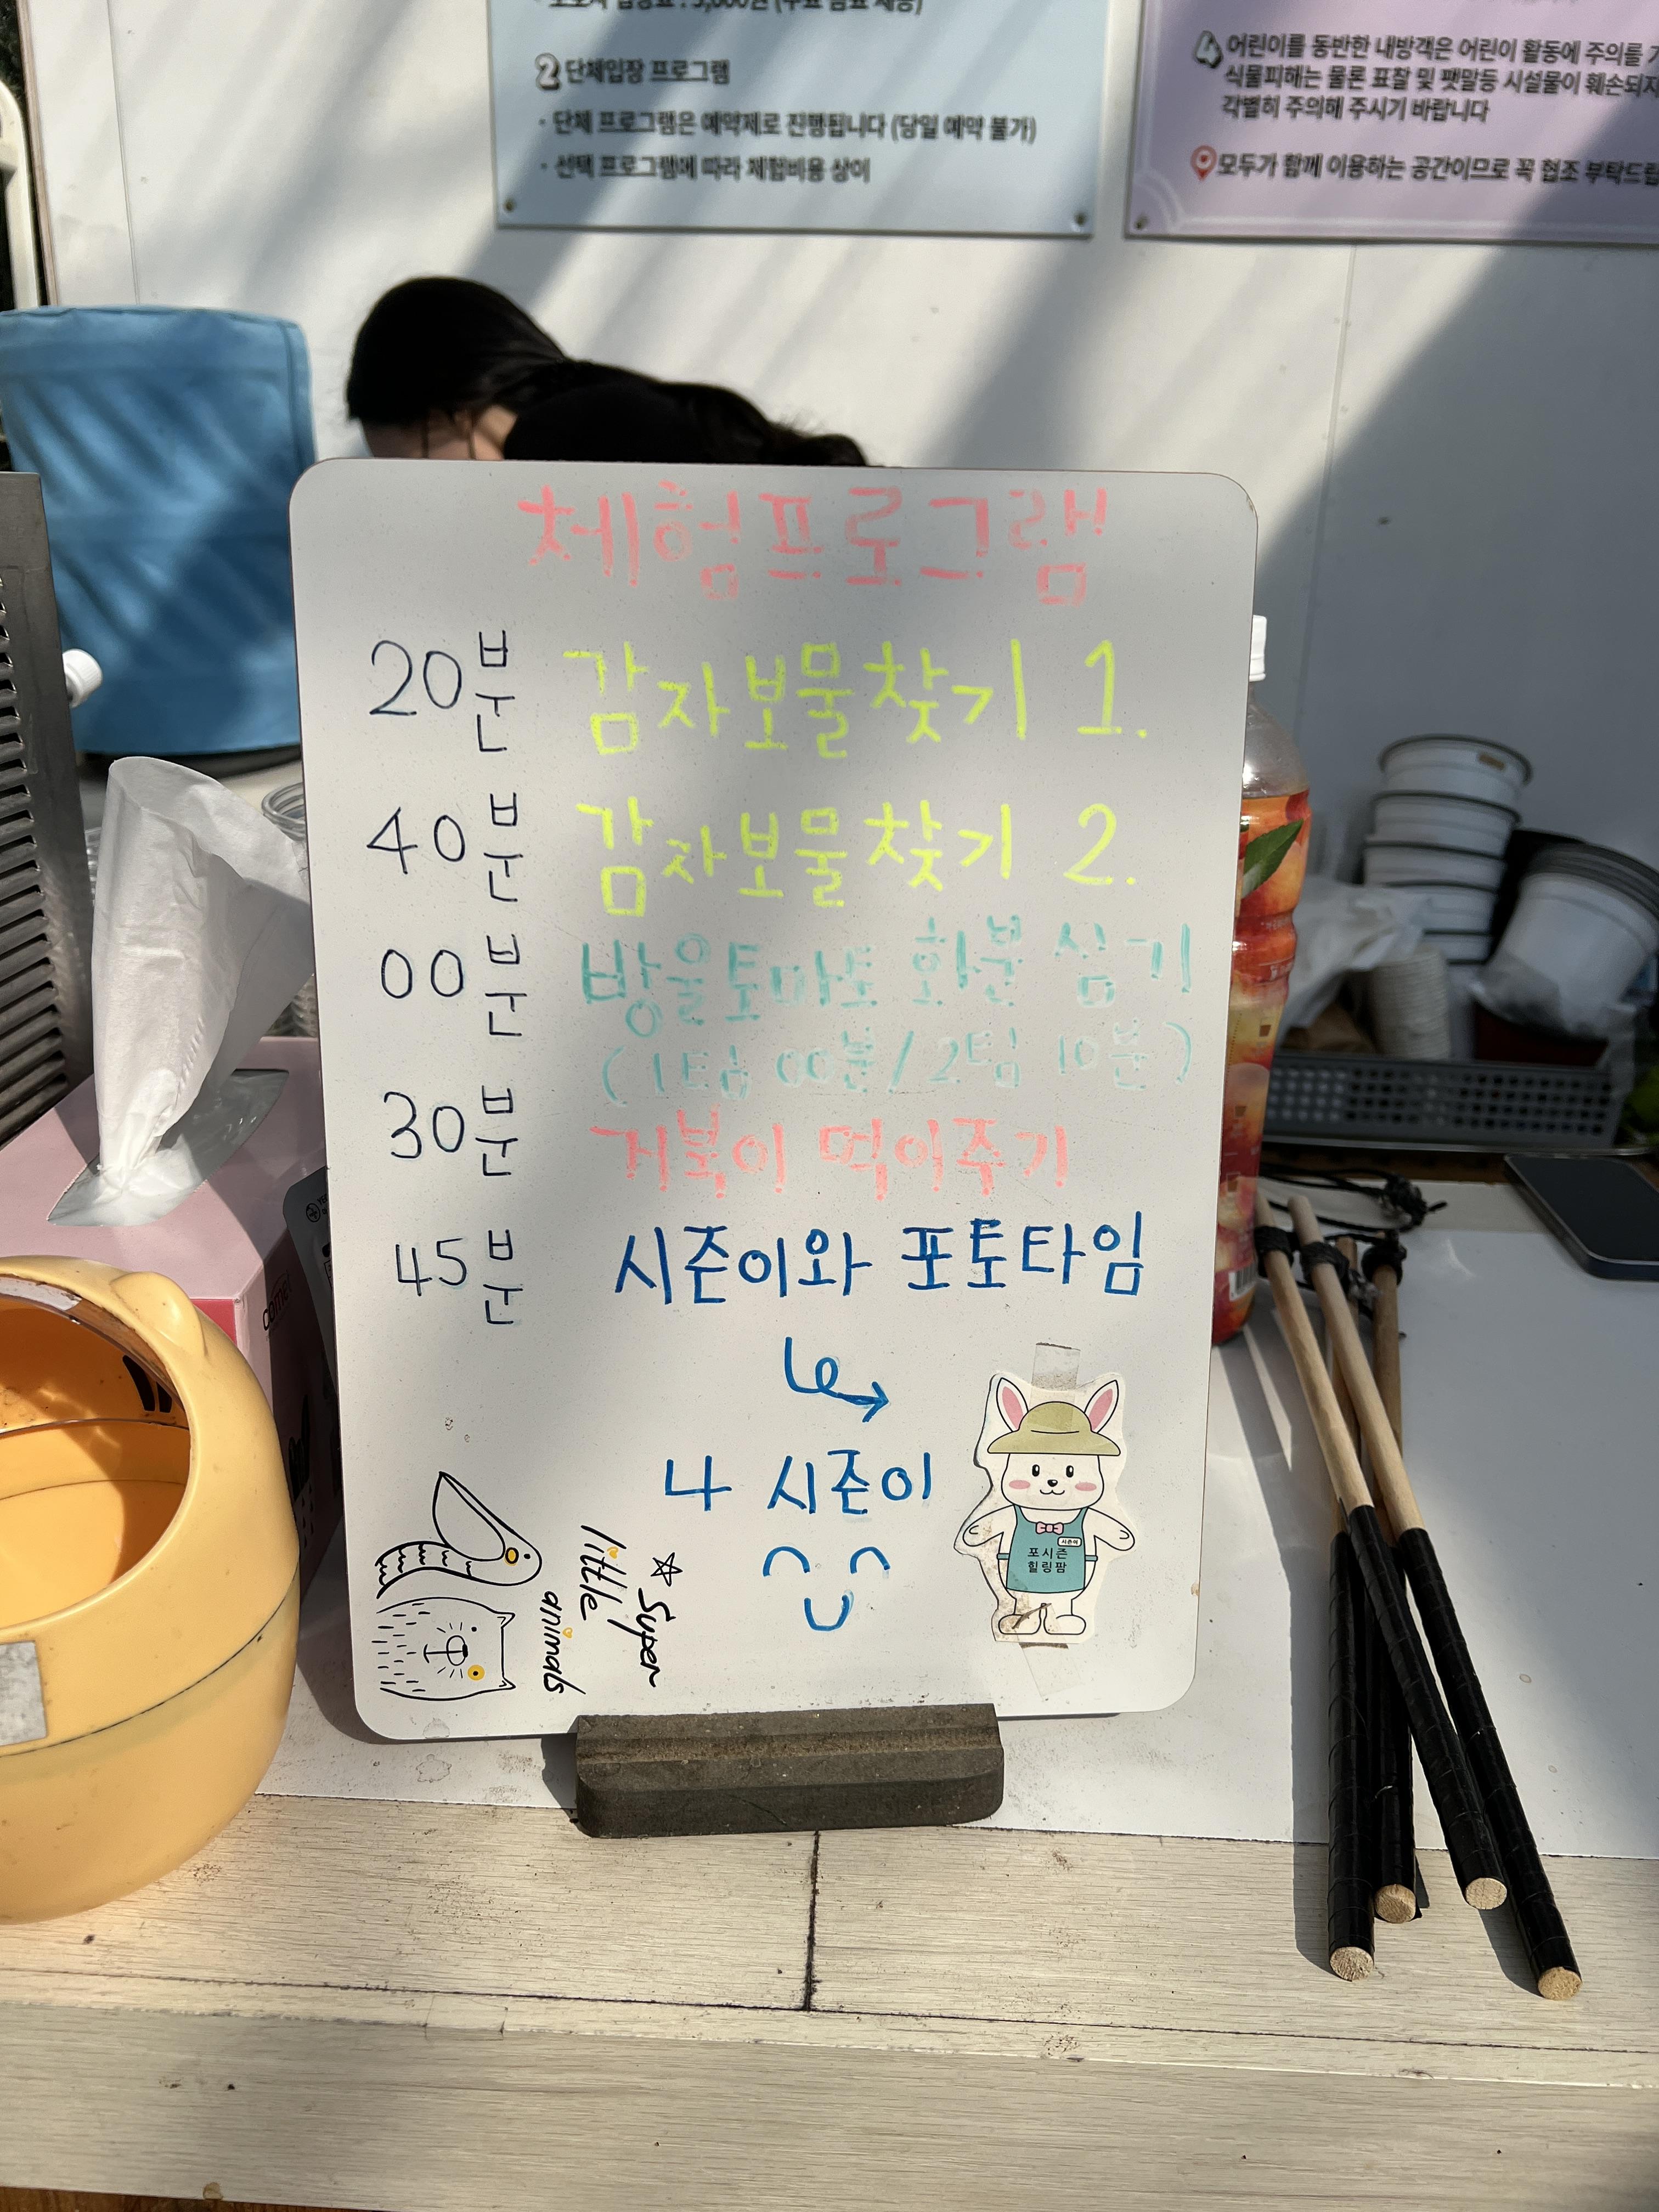 2 단체입장 프로그램
· 단체 프로그램은 예약제로 진행됩니다 (당일 예약 불가)
· 선택 프로그램에 따라 체험비용 상이
4 어린이를 동반한 내방객은 어린이 활동에 주의를
식물피해는 물론 표찰 및 팻말등 시설물이 훼손되지
각별히 주의해 주시기 바랍니다
모두가 함께 이용하는 공간이므로 꼭 협조
체험프로그램
20분 감자보물찾기 1.
40분 감자보물찾기 2.
00분 방울토마토 화분 심기
(1팀 00분 / 2팀 10분)
30분 거북이 먹이주기
45분 시즌이와 포토타임
4 시즌이
시즌이
포시즌
힐링팜
Super
little
animals